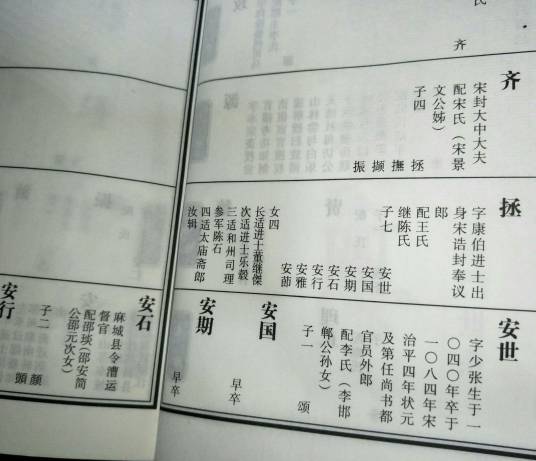 氏
齐
齐
宋封大中大夫
配宋氏（宋景
文公姊）
子四
拯
撫
擷
振
拯
字康伯进士出
身宋诰封奉议
郎
配王氏
继陈氏
子七
安世
安国
安期
安石
安行
安雅
安莭
女四
长适进士董继傑
次适进士乐毅
三适和州司理
参军陈石
四适太庙斋郎
汝辑
安世
字少张生于一
〇四〇年卒于
一〇八四年宋
治平四年状元
及第任尚书都
官员外郎
配李氏（李邯
郸公孙女）
子一
颂
安国
早卒
安期
早卒
安石
麻城县令漕运
督官
配邵琰（邵安简
公邵元次女）
子二
颜
頭
安行